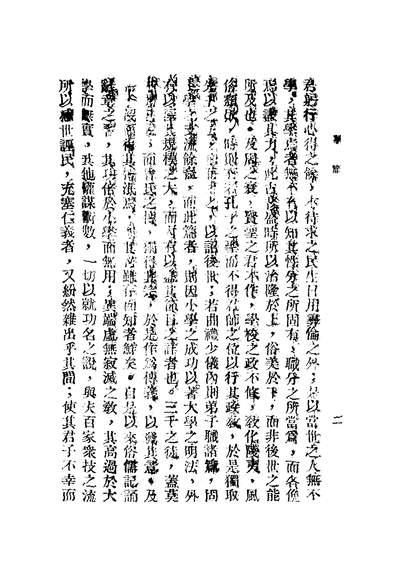 學庸
二
君躬行心得之餘，不待求之民生日用彝倫之外；是以當世之人無不
學，其學焉者無不有以知其性分之所固有，職分之所當爲，而各俛
焉以盡其力，此古昔盛時所以治隆於上，俗美於下，而非後世之能
所及也。及周之衰，賢聖之君不作，學校之政不修，敎化陵夷，風
俗頽敗，時則有若孔子之聖而不得君師之位以行其政敎，於是獨取
先王之法，誦而傳之，以詔後世；若曲禮少儀內則弟子職諸篇，固
小學之支流餘裔，而此篇者，則因小學之成功以著大學之明法，外
有以極其規模之大，而內有以盡其節目之詳者也。三千之徒，蓋莫
不聞其說，而曾氏之傳，獨得其宗，於是作爲傳義，以發其意。及
沒而其傳泯焉，則其書雖存而知者鮮矣。自是以來俗儒記誦
辭章之習，其功倍於小學而無用；異端虛無寂滅之敎，其高過於大
學而無實，其他權謀術數，一切以就功名之說，與夫百家衆技之流
所以惑世誣民，充塞仁義者，又紛然雜出乎其間；使其君子不幸而